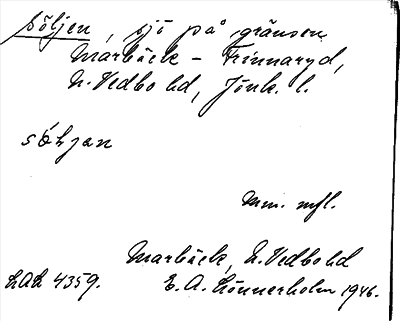 Söljen, sjö på gränsen
Marbäck – Frinnaryd,
N. Vedbo hd, Jönk. l.
söhjan
mm. mfl.
Marbäck, N. Vedbo hd
LAL 4359.
E. A. Lönnerholm 1946.